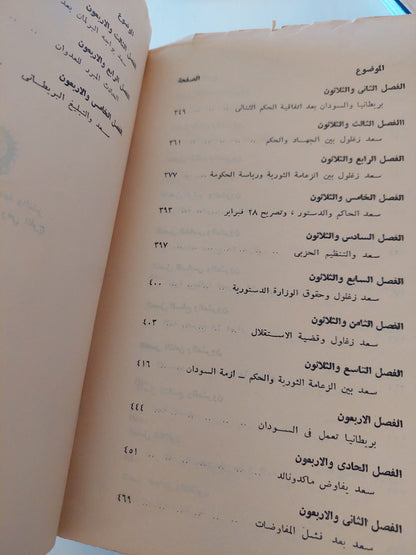 الموضوع
الصفحة
الفصل الثانى والثلاثون
بريطانيا والسودان بعد اتفاقية الحكم الثنائى .. ٣٤٩
االفصل الثالث والثلاثون
سعد زغلول بين الجهاد والحكم .. .. .. ٣٦١
الفصل الرابع والثلاثون
سعد زغلول بين الزعامة الثورية ورياسة الحكومة ٣٧٧
الفصل الخامس والثلاثون
سعد الحاكم والدستور ، وتصريح ٢٨ فبراير .. ٣٩٣
الفصل السادس والثلاثون
سعد والتنظيم الحزبى .. .. .. .. .. ٣٩٧
الفصل السابع والثلاثون
سعد زغلول وحقوق الوزارة الدستورية .. .. ٤٠٠
الفصل الثامن والثلاثون
سعد زغلول وقضية الاستقلال .. .. .. .. ٤٠٣
الفصل التاسع والثلاثون
سعد بين الزعامة الثورية والحكم ــ ازمة السودان ٤١٦
الفصل الاربعون
بريطانيا تعمل فى السودان .. .. .. .. .. ٤٤٤
الفصل الحادى والاربعون
سعد يفاوض ماكدونالد .. .. .. .. ٤٥١
الفصل الثانى والاربعون
سعد بعد فشل المفاوضات .. .. .. .. ٤٦٩
الموضوع
الفصل الثالث والاربعون
سعد يواجه البرلمان بعد
الفصل الرابع والاربعون
الحادث المبرر للعدوان
الفصل الخامس والاربعون
سعد والتبليغ البريطانى